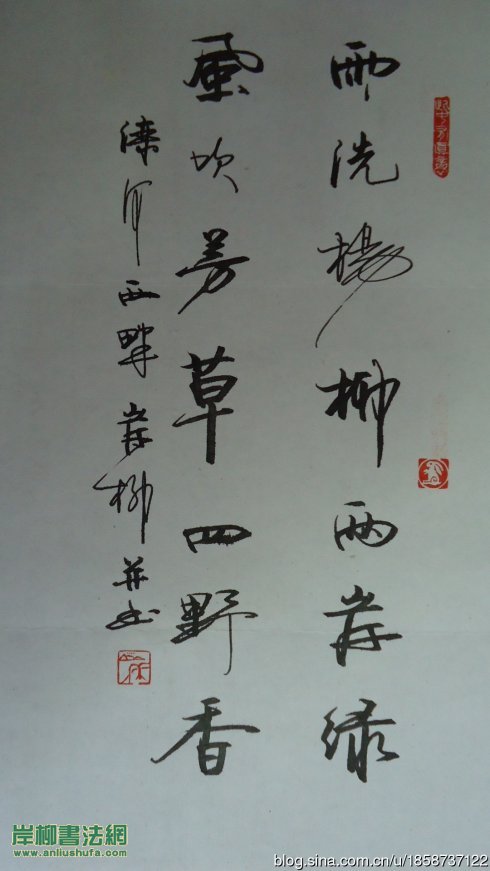 雨洗楊柳兩岸綠
風吹芳草四野香
灤河西畔岸柳并书
岸柳書法網
www.anliushufa.com
blog.sina.com.cn/u/1858737122